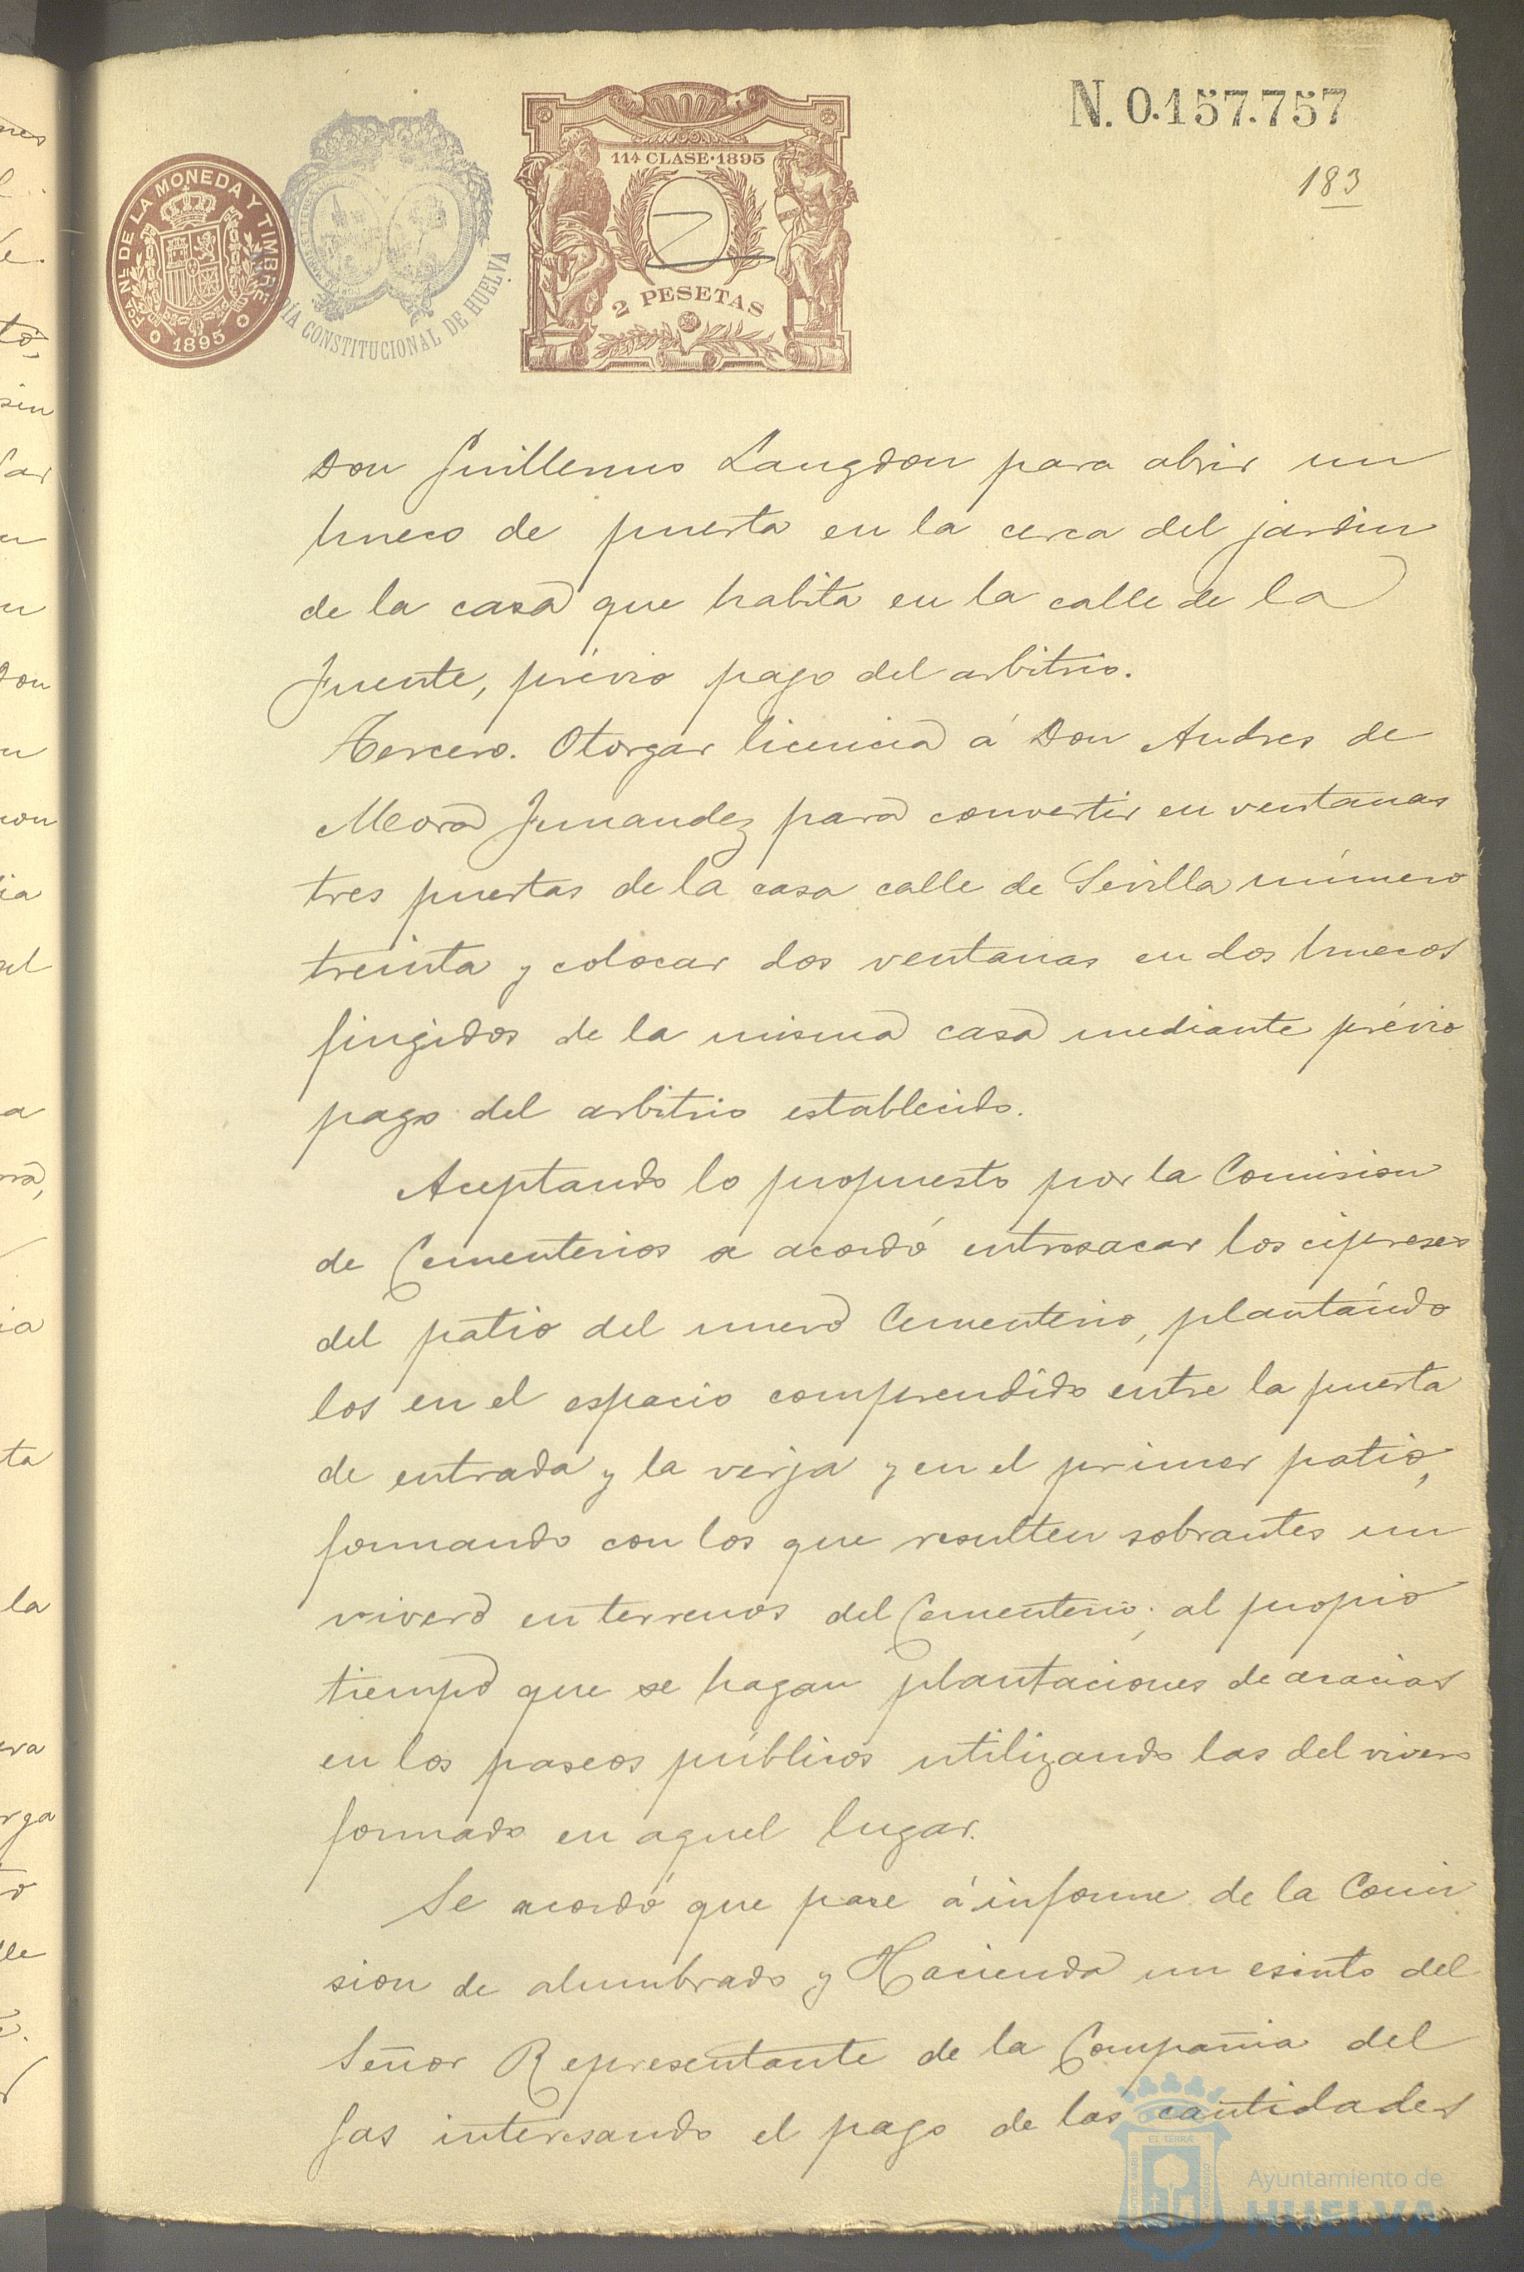 N. 0.157.757
183
FCA NL. DE LA MONEDA Y TIMBRE
1895
CONSTITUCIONAL DE HUELVA
11ª CLASE·1895
2 PESETAS
Don Guillermo Langdon para abrir un
hueco de puerta en la cerca del jardin
de la casa que habita en la calle de la
Fuente, prévio pago del arbitrio.
Tercero. Otorgar licencia á Don Andres de
Mora Fernandez para convertir en ventanas
tres puertas de la casa calle de Sevilla número
treinta y colocar dos ventanas en dos huecos
fingidos de la misma casa mediante prévio
pago del arbitrio establecido.
Aceptando lo propuesto por la Comision
de Cementerios se acordó entresacar los cipreses
del patio del nuevo Cementerio, plantándo
los en el espacio comprendido entre la puerta
de entrada y la verja y en el primer patio,
formando con los que resulten sobrantes un
vivero en terrenos del Cementerio; al propio
tiempo que se hagan plantaciones de acacias
en los paseos públicos utilizando las del vivero
formado en aquel lugar.
Se acordó que pase á informe de la Comi
sion de alumbrado y Hacienda un escrito del
Señor Representante de la Compañia del
Gas interesando el pago de las cantidades
Ayuntamiento de
HUELVA